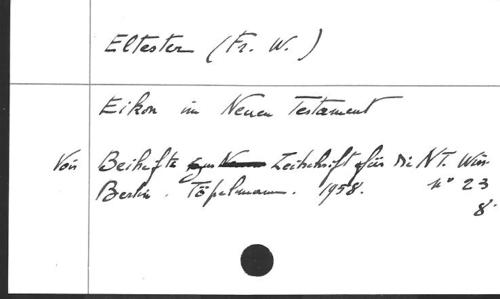 Eltester (Fr. W.)
Eikon im Neuen Testament
Voir Beihefte zur Zeitschrift für die NT. Wiss
Berlin. Töpelmann. 1958. n° 23
8°